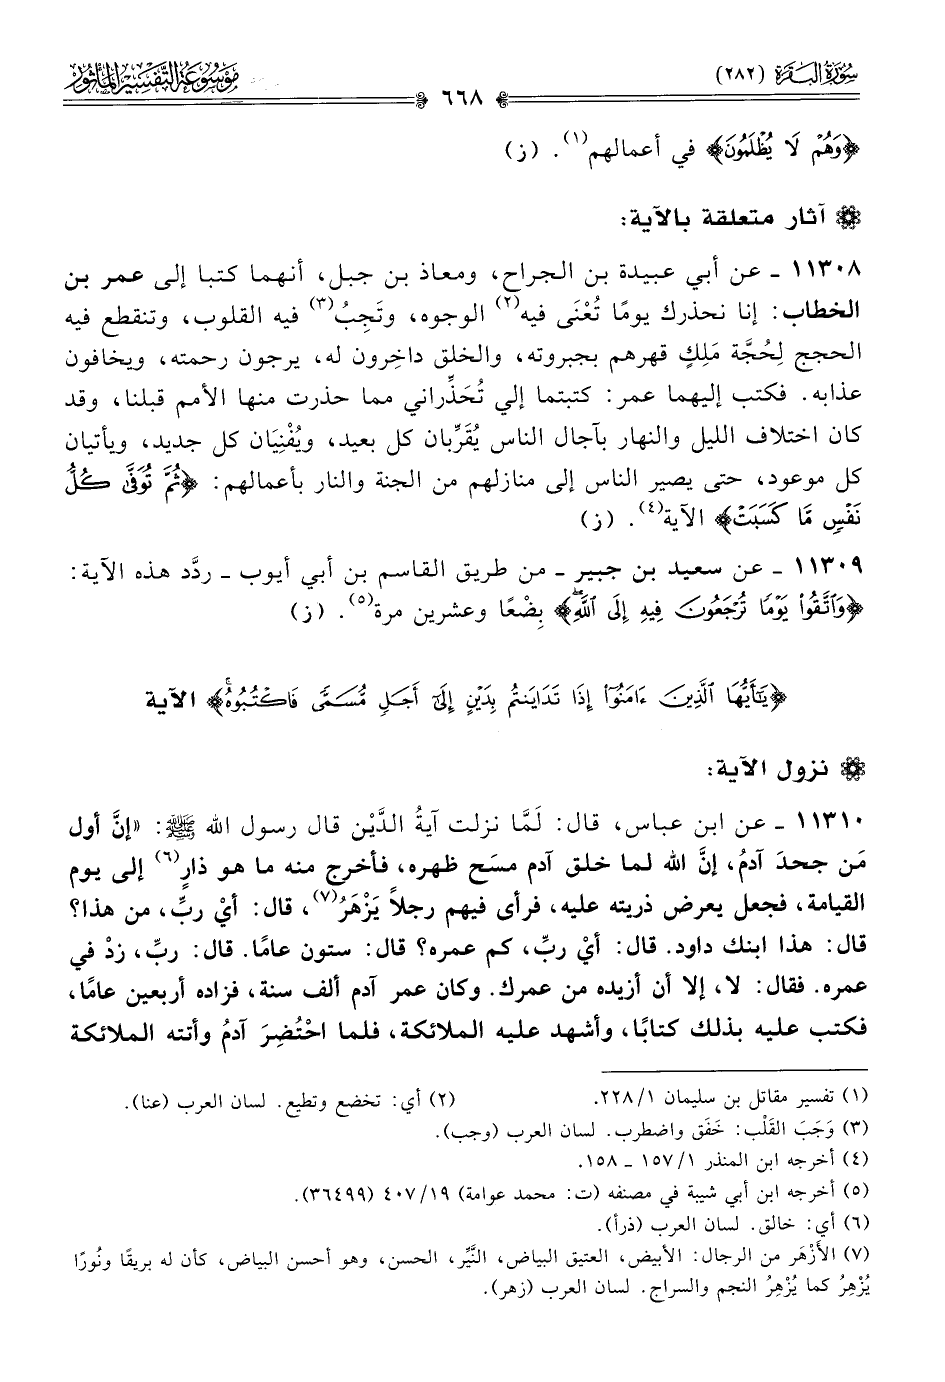 سُورَةُ البَقَرَةِ (٢٨٢)
٦٦٨
مَوْسُوعَة التَّفْسِير المَأْثُور
﴿وَهُمْ لَا يُظْلَمُونَ﴾ في أعمالهم(١). (ز)
آثار متعلقة بالآية:
١١٣٠٨ ـ عن أبي عبيدة بن الجراح، ومعاذ بن جبل، أنهما كتبا إلى عمر بن
الخطاب: إنا نحذرك يومًا تُعْنَى فيه(٢) الوجوه، وتَجِبُ(٣) فيه القلوب، وتنقطع فيه
الحجج لِحُجَّة مَلِكٍ قهرهم بجبروته، والخلق داخِرون له، يرجون رحمته، ويخافون
عذابه. فكتب إليهما عمر: كتبتما إلي تُحَذِّراني مما حذرت منها الأمم قبلنا، وقد
كان اختلاف الليل والنهار بآجال الناس يُقَرِّبان كل بعيد، ويُفْنِيَان كل جديد، ويأتيان
كل موعود، حتى يصير الناس إلى منازلهم من الجنة والنار بأعمالهم: ﴿ثُمَّ تُوَفَّىٰ كُلُّ
نَفْسٍ مَّا كَسَبَتْ﴾ الآية(٤). (ز)
١١٣٠٩ ـ عن سعيد بن جبير ـ من طريق القاسم بن أبي أيوب ـ ردَّد هذه الآية:
﴿وَٱتَّقُوا۟ يَوْمًا تُرْجَعُونَ فِيهِ إِلَى ٱللَّهِ﴾ بِضْعًا وعشرين مرة(٥). (ز)
﴿يَٰٓأَيُّهَا ٱلَّذِينَ ءَامَنُوٓا۟ إِذَا تَدَايَنتُم بِدَيْنٍ إِلَىٰٓ أَجَلٍ مُّسَمًّى فَٱكْتُبُوهُ﴾ الآية
نزول الآية:
١١٣١٠ ـ عن ابن عباس، قال: لَمَّا نزلت آيةُ الدَّيْن قال رسول الله ﷺ: «إنَّ أول
مَن جحدَ آدمُ، إنَّ الله لما خلق آدم مسَح ظهره، فأخرج منه ما هو ذارٍ(٦) إلى يوم
القيامة، فجعل يعرض ذريته عليه، فرأى فيهم رجلاً يَزْهَرُ(٧)، قال: أيْ ربِّ، من هذا؟
قال: هذا ابنك داود. قال: أيْ ربِّ، كم عمره؟ قال: ستون عامًا. قال: ربِّ، زدْ في
عمره. فقال: لا، إلا أن أزيده من عمرك. وكان عمر آدم ألف سنة، فزاده أربعين عامًا،
فكتب عليه بذلك كتابًا، وأشهد عليه الملائكة، فلما احْتُضِرَ آدمُ وأتته الملائكة
(١) تفسير مقاتل بن سليمان ١/ ٢٢٨. (٢) أي: تخضع وتطيع. لسان العرب (عنا).
(٣) وَجَبَ القَلْب: خَفَق واضطرب. لسان العرب (وجب).
(٤) أخرجه ابن المنذر ١/ ١٥٧ ـ ١٥٨.
(٥) أخرجه ابن أبي شيبة في مصنفه (ت: محمد عوامة) ١٩/ ٤٠٧ (٣٦٤٩٩).
(٦) أي: خالق. لسان العرب (ذرأ).
(٧) الأَزْهَر من الرجال: الأبيض، العتيق البياض، النَّيِّر، الحسن، وهو أحسن البياض، كأن له بريقًا ونُورًا
يُزْهِرُ كما يُزْهِرُ النجم والسراج. لسان العرب (زهر).